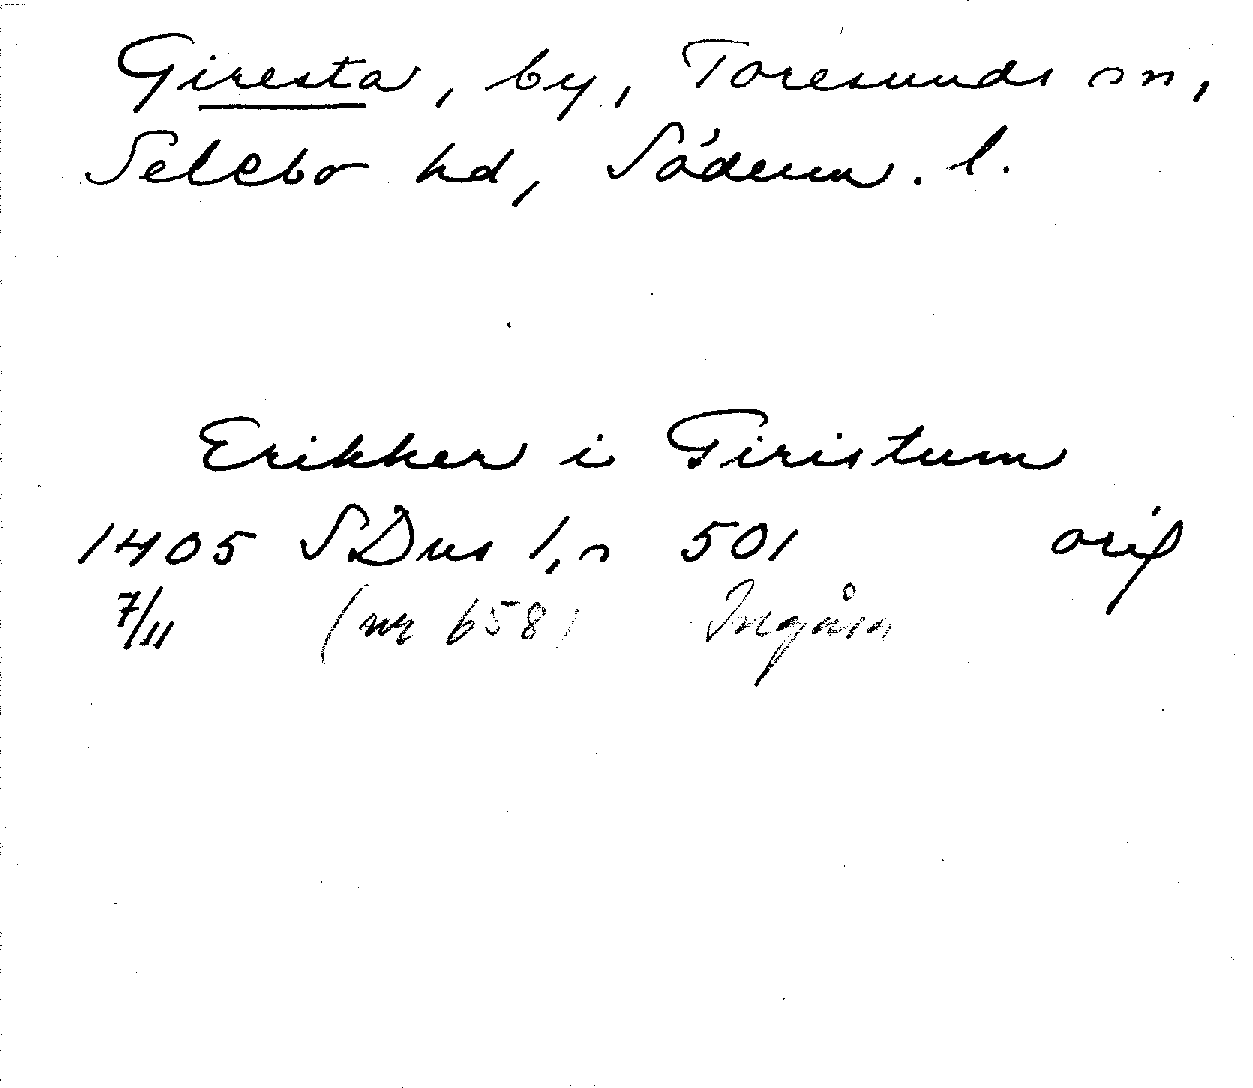 Giresta, by, Toresunds sn,
Selebo hd, Söderm. l.
Erikker i Giristum
1405 SDns 1, s 501 orig
7/11 (nr 658)